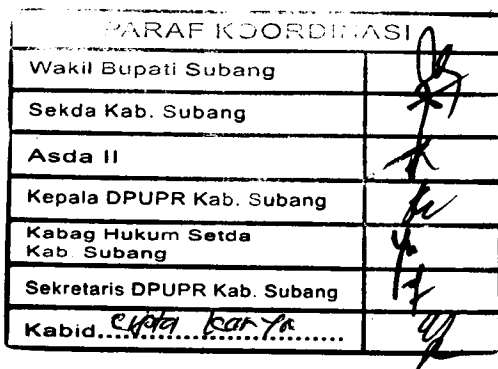 PARAF KOORDINASI
Wakil Bupati Subang
Sekda Kab. Subang
Asda II
Kepala DPUPR Kab. Subang
Kabag Hukum Setda
Kab. Subang
Sekretaris DPUPR Kab. Subang
Kabid. Cipta Karya